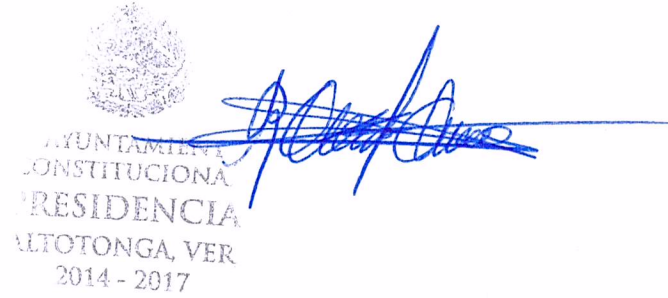 AYUNTAMIENT
CONSTITUCIONA
PRESIDENCIA
ALTOTONGA, VER
2014 - 2017